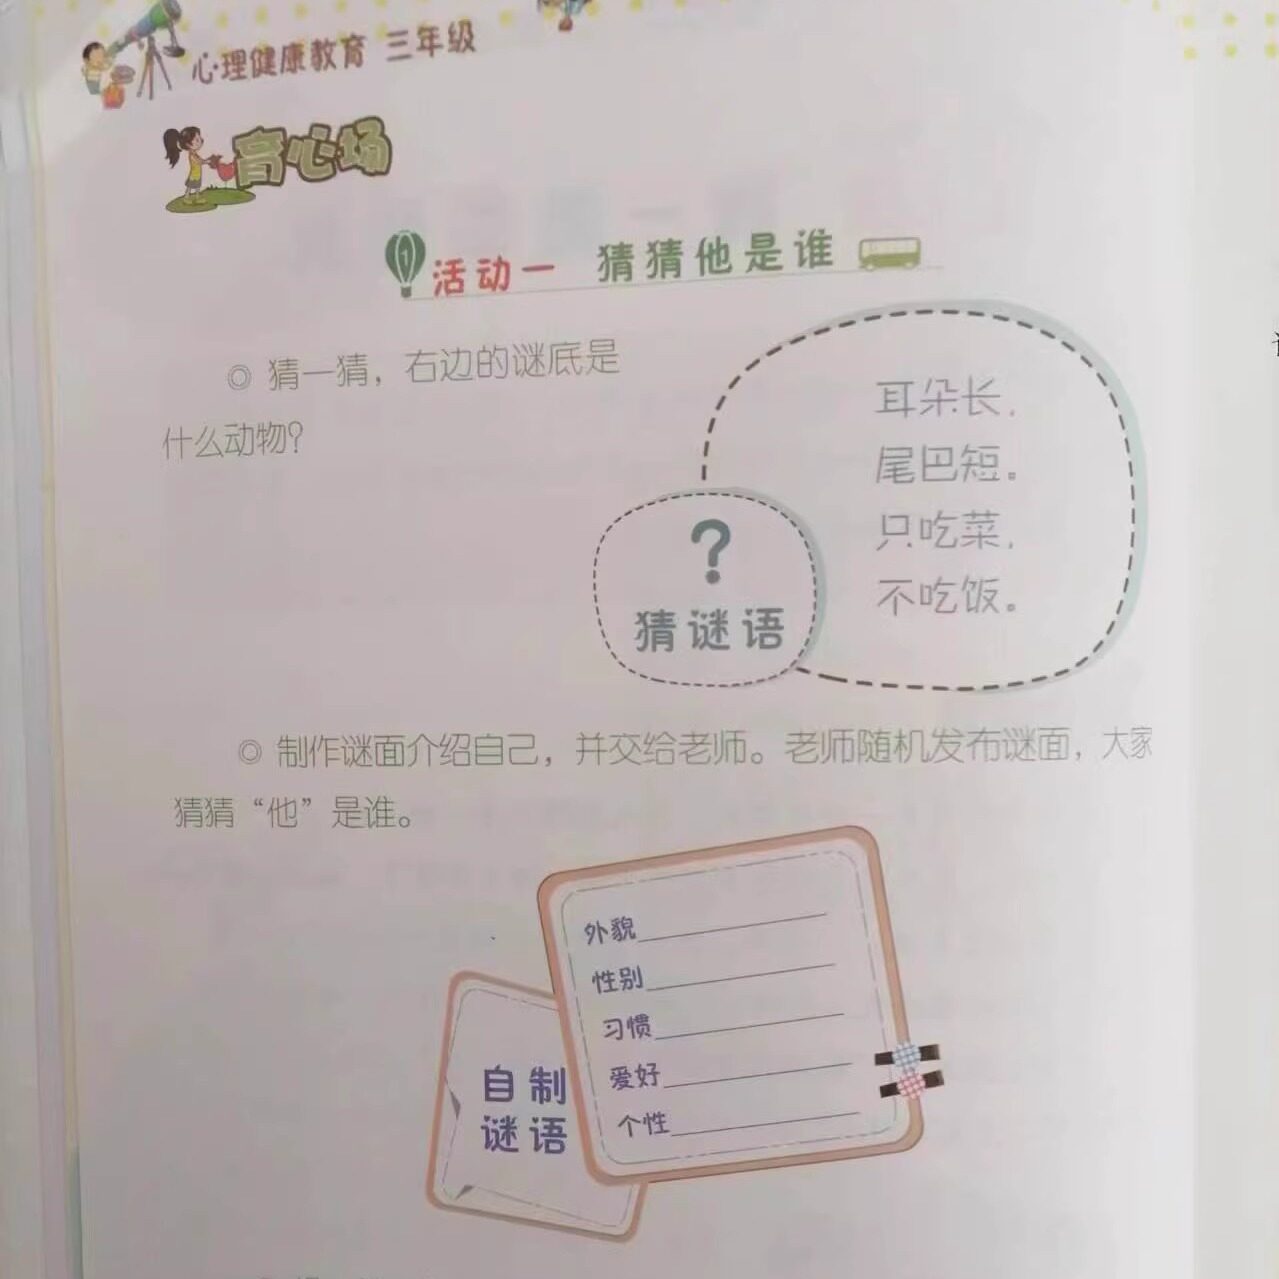 心理健康教育 三年级
育心场
1 活动一 猜猜他是谁
◎ 猜一猜，右边的谜底是
什么动物？
耳朵长，
尾巴短。
只吃菜，
不吃饭。
?
猜谜语
◎ 制作谜面介绍自己，并交给老师。老师随机发布谜面，大家
猜猜“他”是谁。
外貌
性别
习惯
爱好
个性
自制
谜语